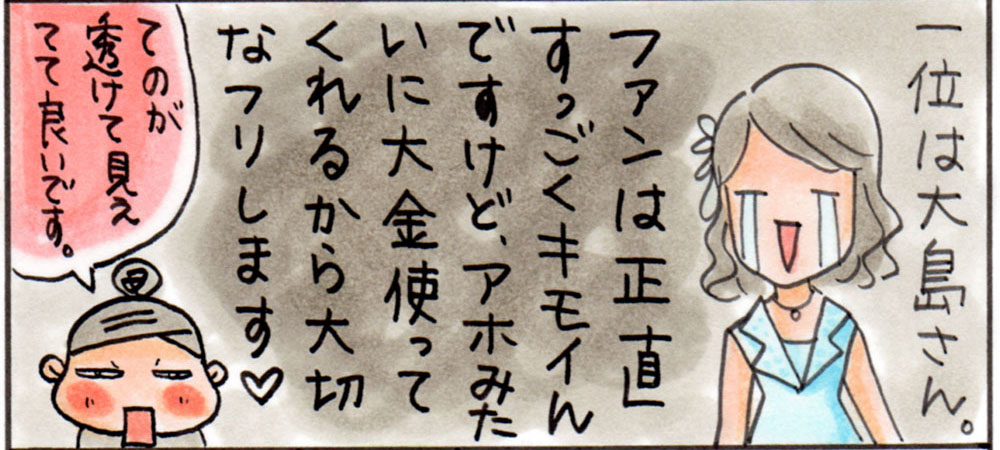 一位は大島さん。
ファンは正直
すっごくキモイん
ですけど、アホみた
いに大金使って
くれるから大切
なフリします♡
てのが
透けて見え
てて良いです。